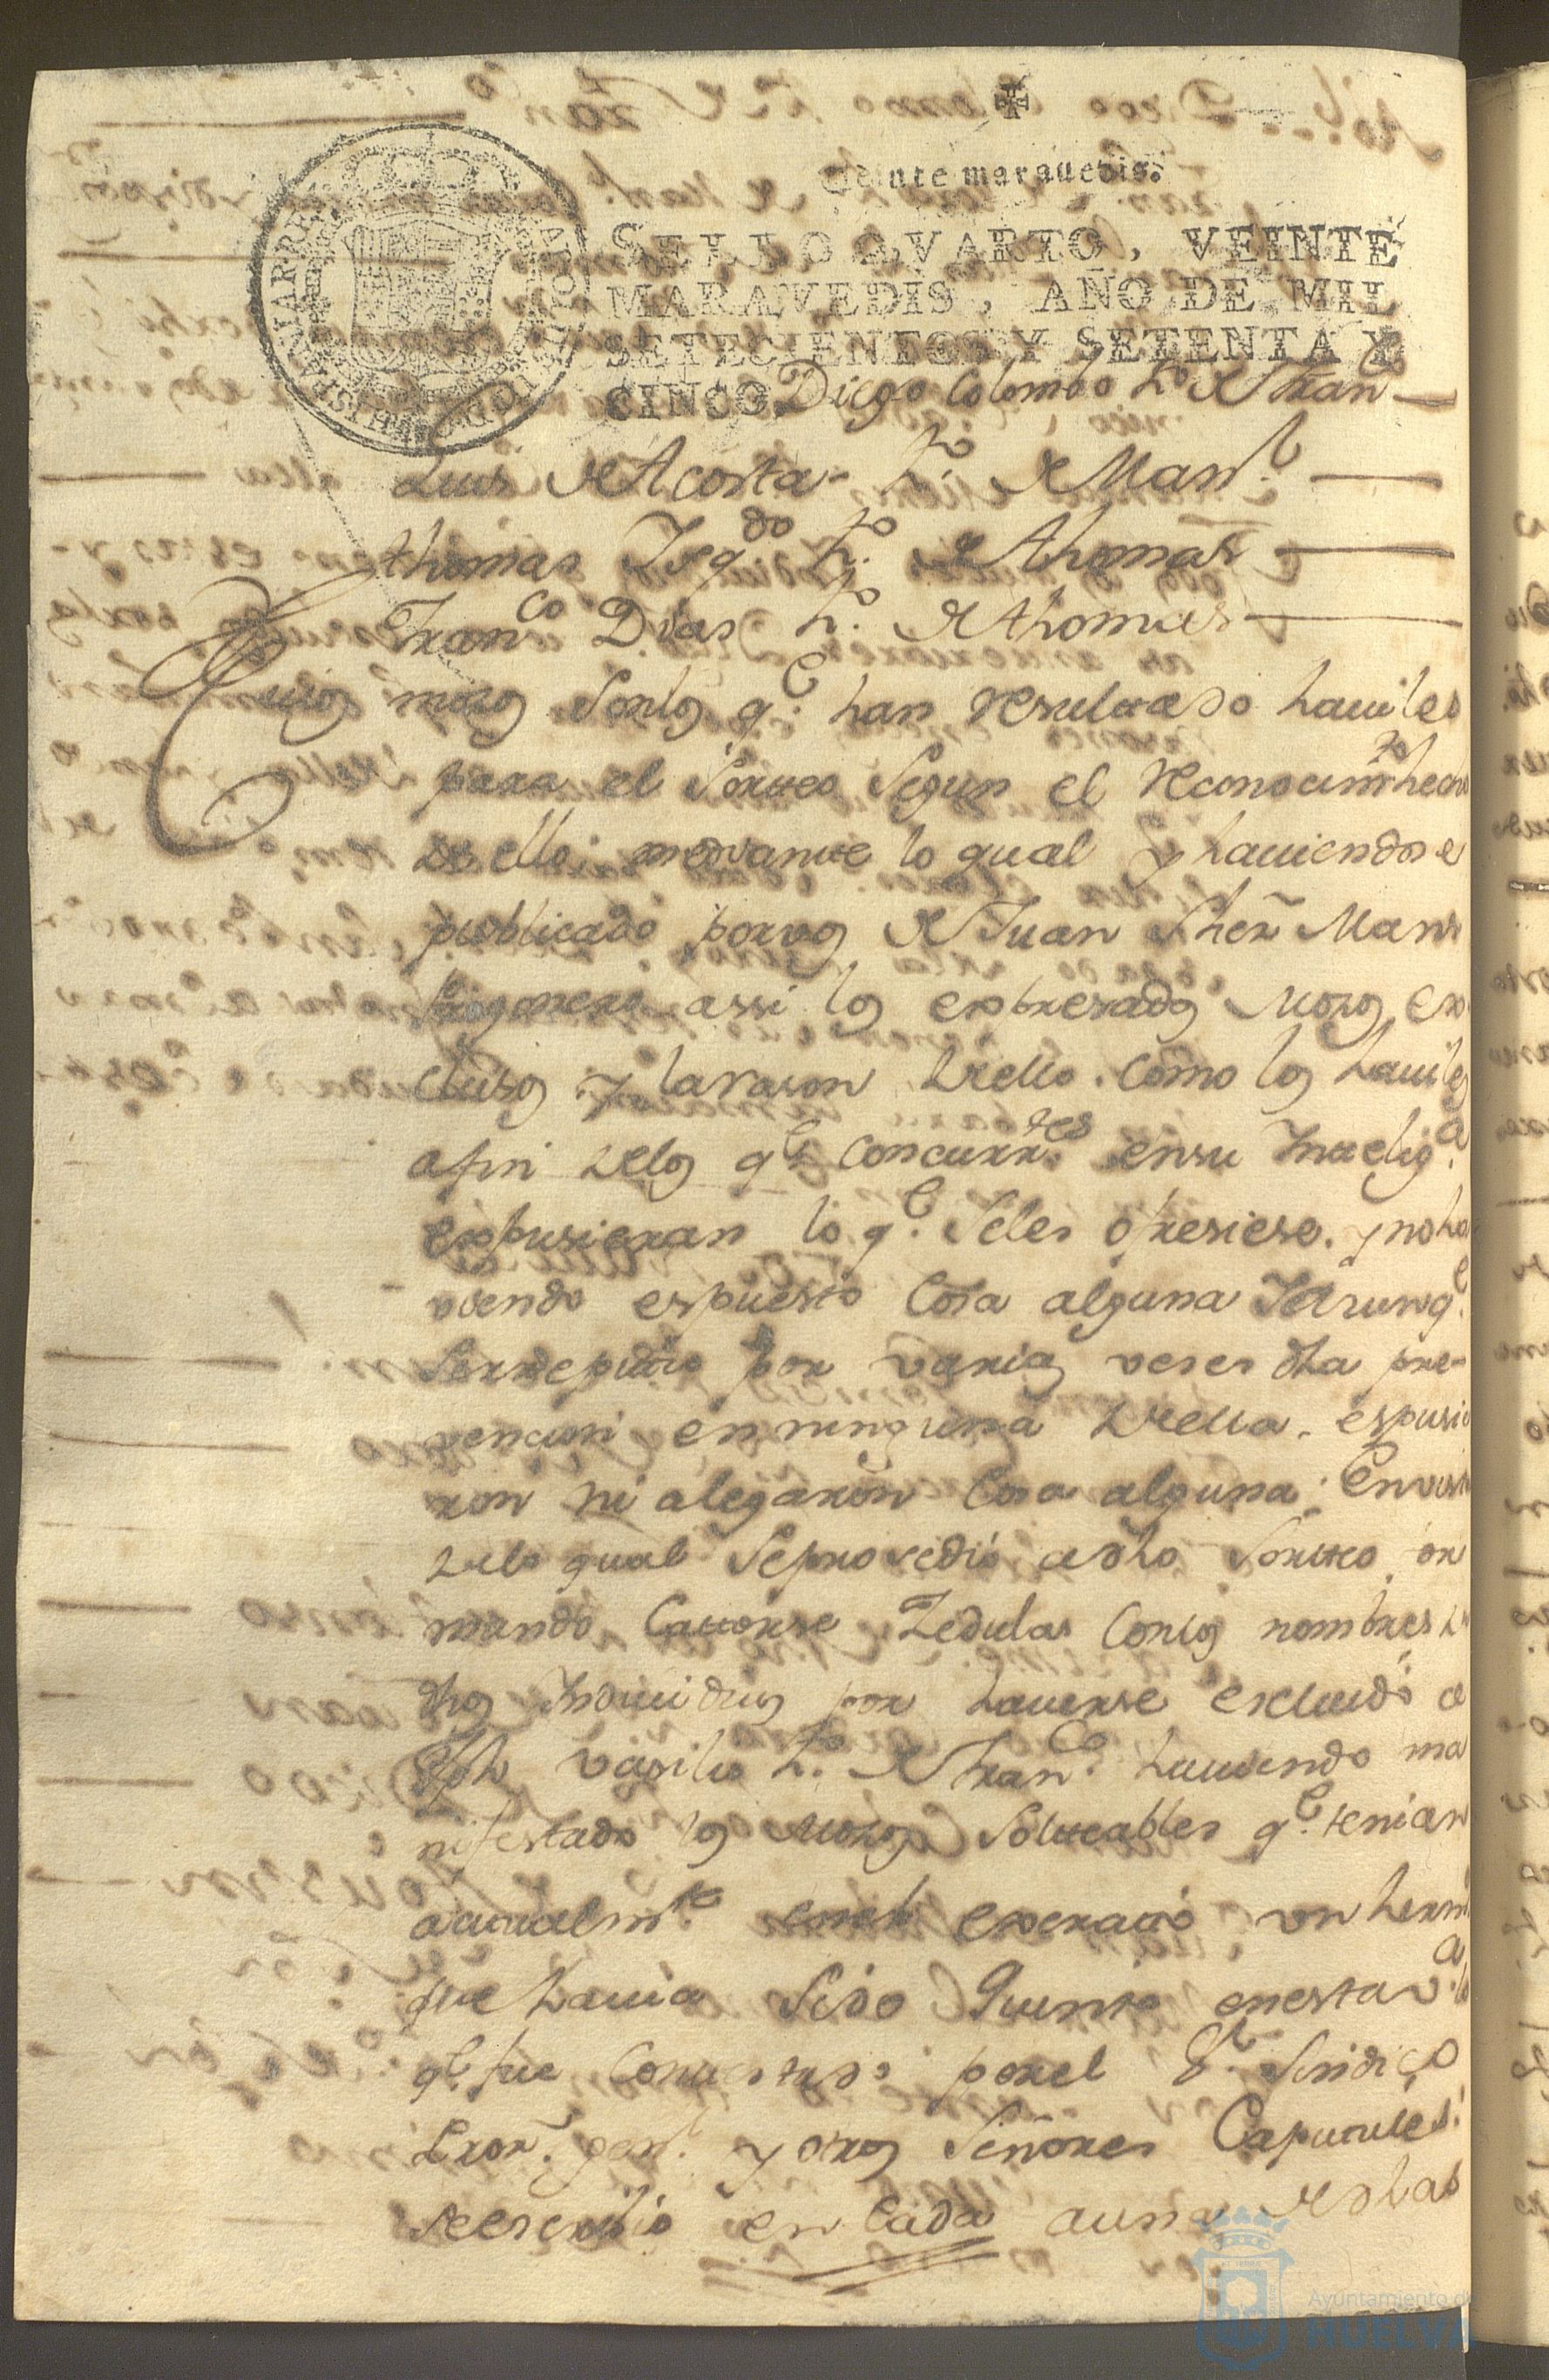 Veinte marauedis.
SELLO QVARTO, VEINTE
MARAVEDIS, AÑO DE MIL
SETECIENTOS Y SETENTA Y
CINCO.
Diego Colombo h.º de Fran.co
Luis de Acosta h.º de Man.l
thomas Seg.do h.º de thomas
Fran.co Dias h.º de thomas
Cuios mozos son los q.e han resultado hauiles
para el Sorteo Segun el reconocim.to hecho
de ello. mediante lo qual y hauiendose
publicado por vos de Juan Mart
pregonero assi los expresados mozos ex
cluisos y la rason de ello. como los hauiles
a fin de los q.e concurr.tes en su Yntelig.a
expusieran lo q.e se les ofresiese. y no ha
viendo espuesto Cosa alguna Y aunq.e
se repitio por varias veses dha pre-
vencion en ninguna de ella. espusie
ron ni alegaron Cosa alguna. En vista
de lo qual se provedió a dho Sorteo,
mando Cattorse Zedulas con los nombres de
dhos Yndiuiduos por hauerse escluido a
Jph Vasilio h.º de Fran.co hauiendo ma
nifestado los mozos Sorteables q.e tenian
actualm.te en el exercitto un herm.o
que hauia Sido Quinto en esta V.a lo
q.e fue contestado por el S.r Sindico
Pror. gen.l y otros Señores Capitulres.
se escriuió en Cada una de dhas
Ayuntamiento de
HUELVA